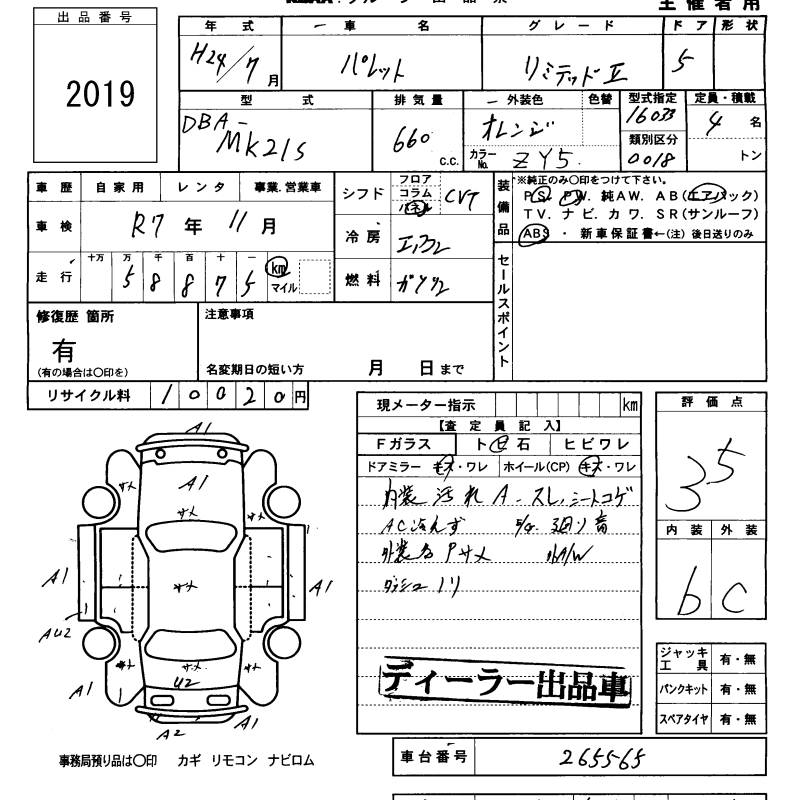 出品番号
2019
主催者用
年式 一車名 グレード ドア 形状
H24/7月 パレット リミテッドⅡ 5
型式 排気量 一外装色 色替 型式指定 定員・積載
DBA-MK21S 660 c.c. オレンジ 16033 4名
カラーNo. ZY5 類別区分 0018 トン
車歴 自家用 レンタ 事業.営業車
車検 R7年 11月
走行 十万 万 千 百 十 一
5 8 8 7 5 km マイル
シフト フロア コラム パネル CVT
冷房 エアコン
燃料 ガソリン
装備品
※純正のみ〇印をつけて下さい。
PS. PW. 純AW. AB(エアバック)
TV. ナビ. カワ. SR(サンルーフ)
ABS ・ 新車保証書←(注) 後日送りのみ
セールスポイント
修復歴 箇所
有
(有の場合は〇印を)
注意事項
名変期日の短い方 月 日まで
リサイクル料 1 0 0 2 0 円
現メーター指示 km
【査定員記入】
Fガラス トビ石 ヒビワレ
ドアミラー キズ・ワレ ホイール(CP) キズ・ワレ
内装 汚れ A. スレ, シートコゲ
AC
外装名
評価点
3.5
内装 外装
b C
A1
A1
A1
A1
AU2
U2
A1
A1
A2
ディーラー出品車
ジャッキ工具 有・無
パンクキット 有・無
スペアタイヤ 有・無
事務局預り品は〇印 カギ リモコン ナビロム
車台番号 265565